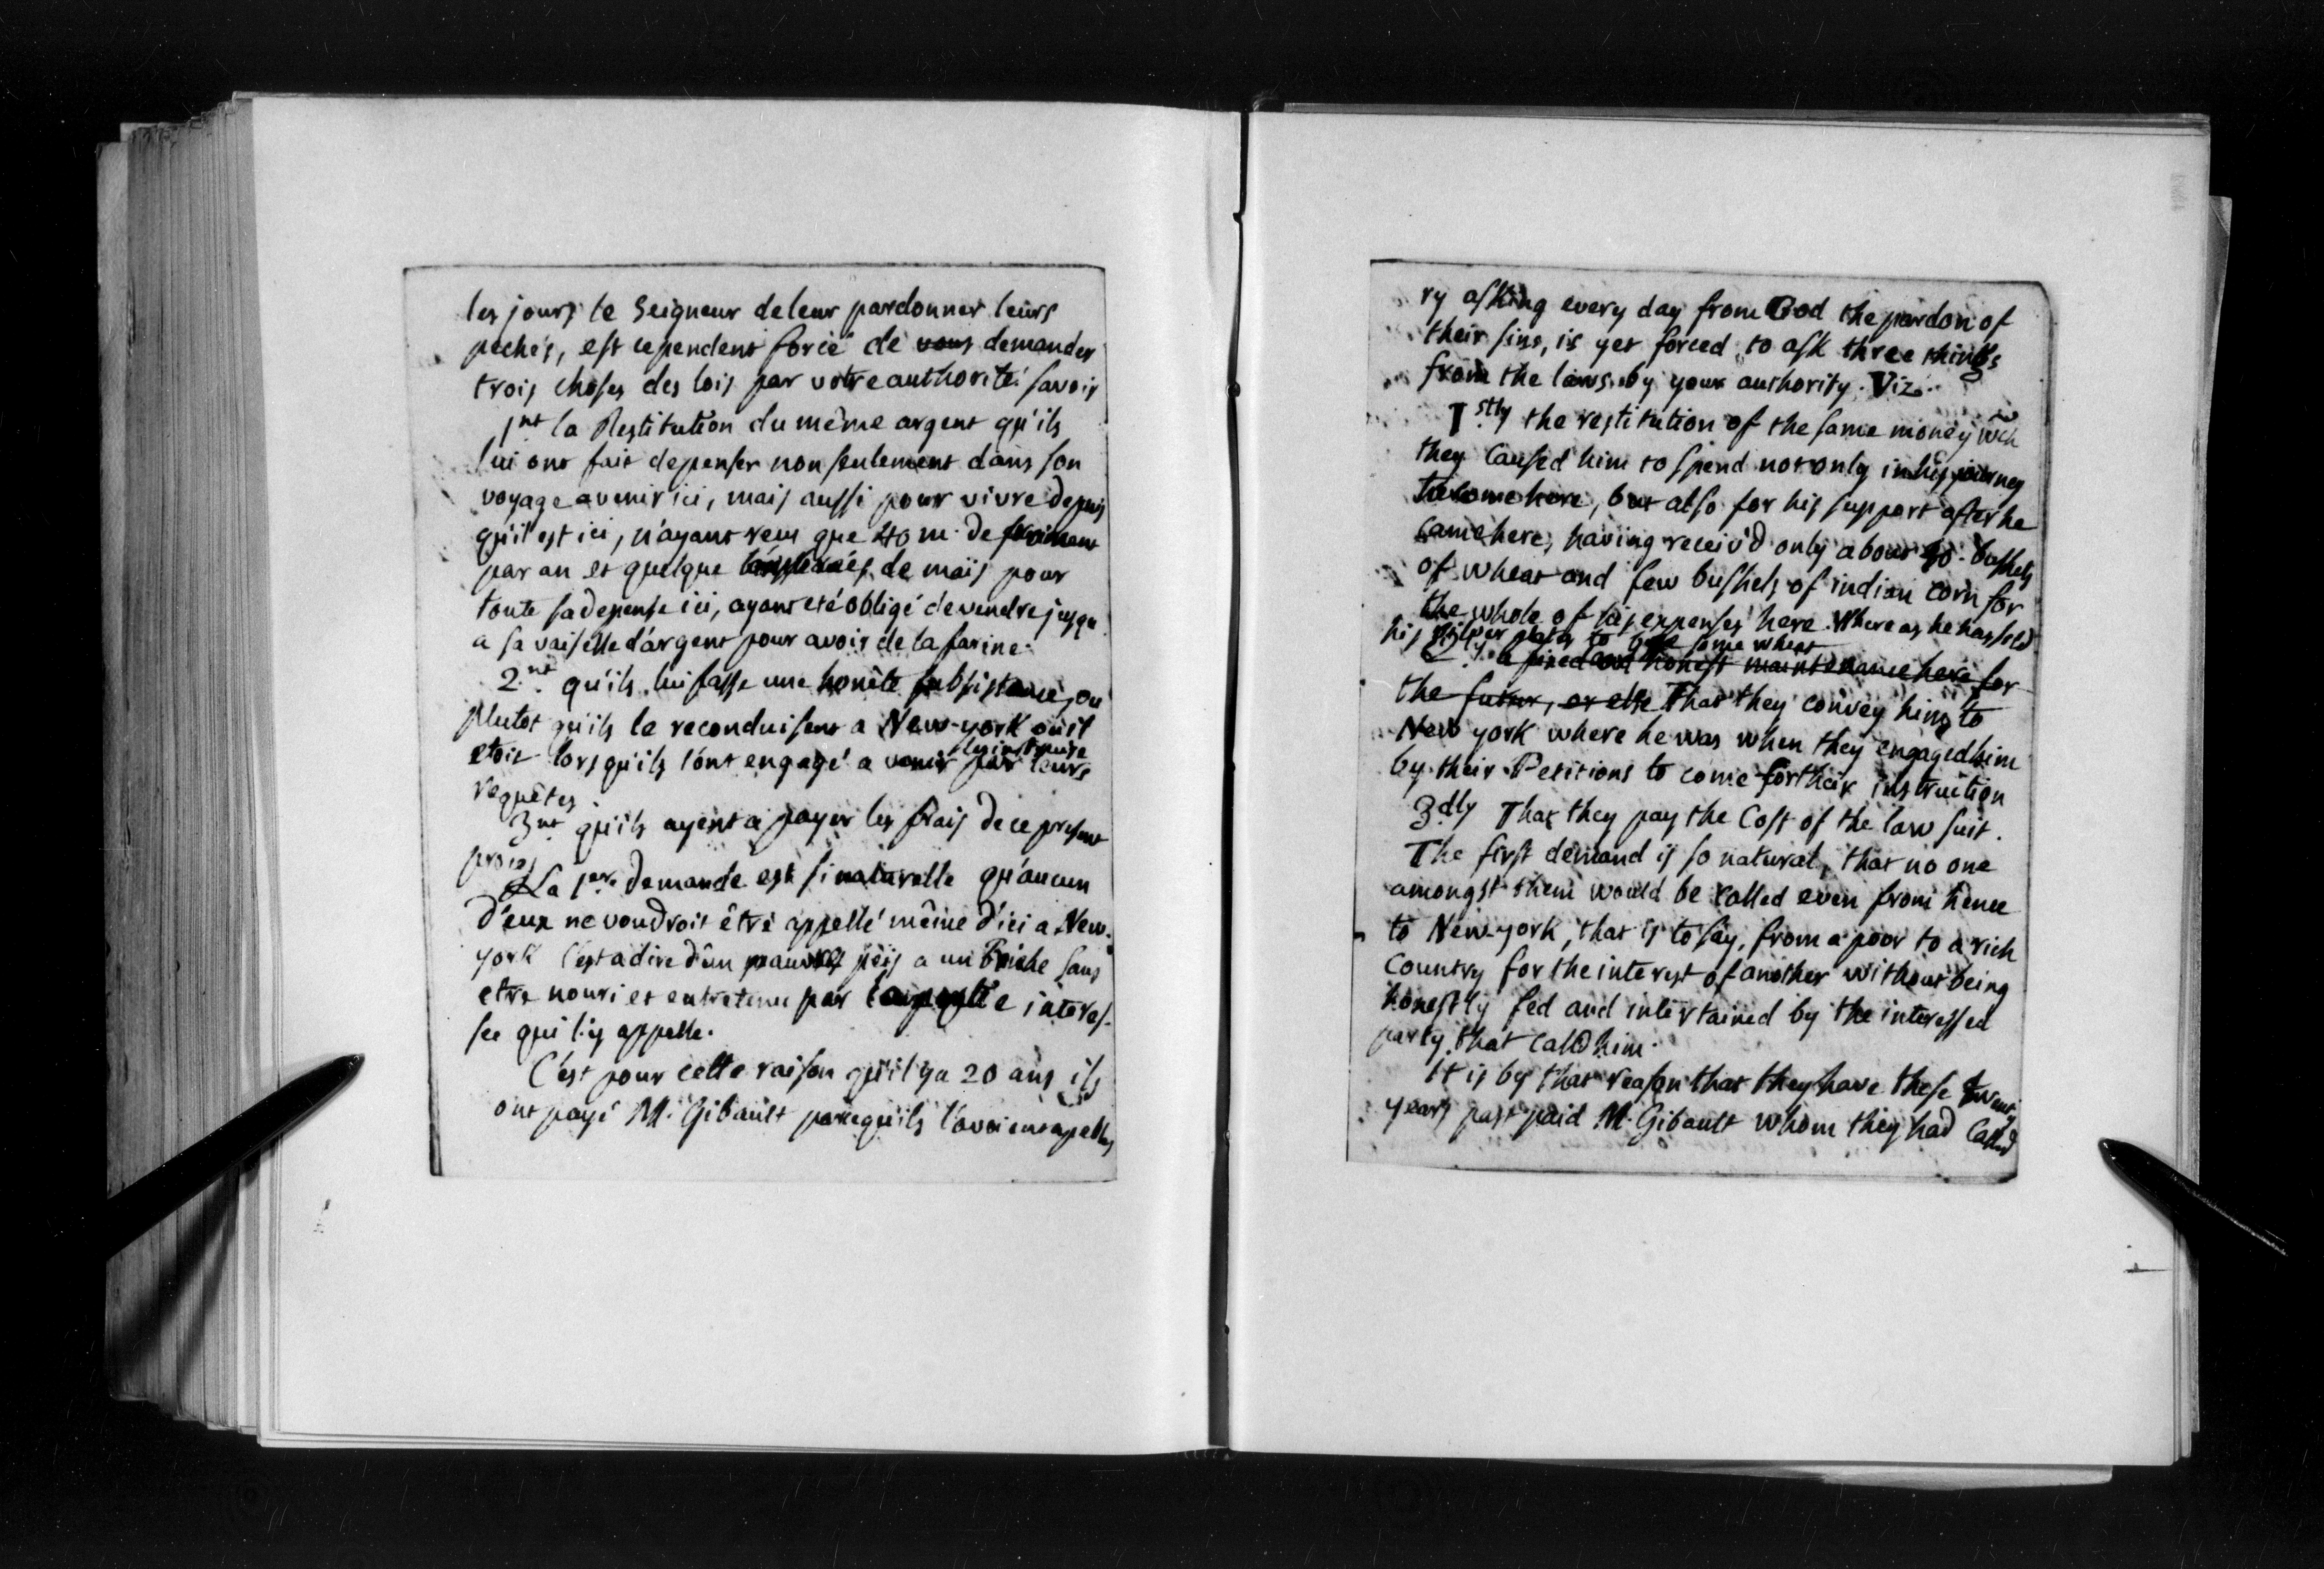 les jours le Seigneur de leur pardonner leurs
pechés, est cependent forcé de vous demander
trois choses des lois par votre authorité. savoir
1nt la Restitution du même argent qu'ils
lui ont fait depenser non seulement dans son
voyage a venir ici, mais aussi pour vivre depuis
qu'il est ici, n'ayant reçu que 40 m. de froiment
par an et quelque de maïs pour
toute sa depense ici, ayant eté obligé de vendre jusqu
a sa vaiselle d'argent pour avoir de la farine.
2.nt qu'ils lui fasse une honête subsistance, ou
plutot qu'ils le reconduisent a New-york où il
etoit lorsqu'ils l'ont engagé a venir les instruire par leurs
requêtes.
3nt qu'ils ayent a payer les frais de ce present
procès
La 1ere demande est si naturelle qu'aucun
d'eux ne voudroit être appellé même d'ici a New-
york c'est a dire d'un pauvre péïs a un riche sans
etre nouri et entretenu par la partie interes-
see qui l'y appelle.
C'est pour cette raison qu'il y a 20 ans ils
ont payé M. Gibault parcequ'ils l'avoient apellés
ry asking every day from God the pardon of
their sins, is yet forced to ask three things
from the laws by your authority. Viz.
1stly the restitution of the same money wch
they Caused him to spend not only in his journey
to come here, but also for his support after he
came here, having receiv'd only about 40 bushels
of wheat and few bushels of indian corn for
the whole of his expenses here. Where as he has sold
his silver plates to some wheat
2. a fixed and honest maintenance here for
the futur, or else That they convey him to
New york where he was when they engaged him
by their Petitions to come for their instruction
3dly That they pay the Cost of the law suit.
The first demand is so natural, that no one
amongst them would be called even from hence
to New-york, that is to say, from a poor to a rich
Country for the interest of another without being
honestly fed and intertained by the interessed
party that calld him.
It is by that reason that they have these twenty
years past paid M. Gibault whom they had Called